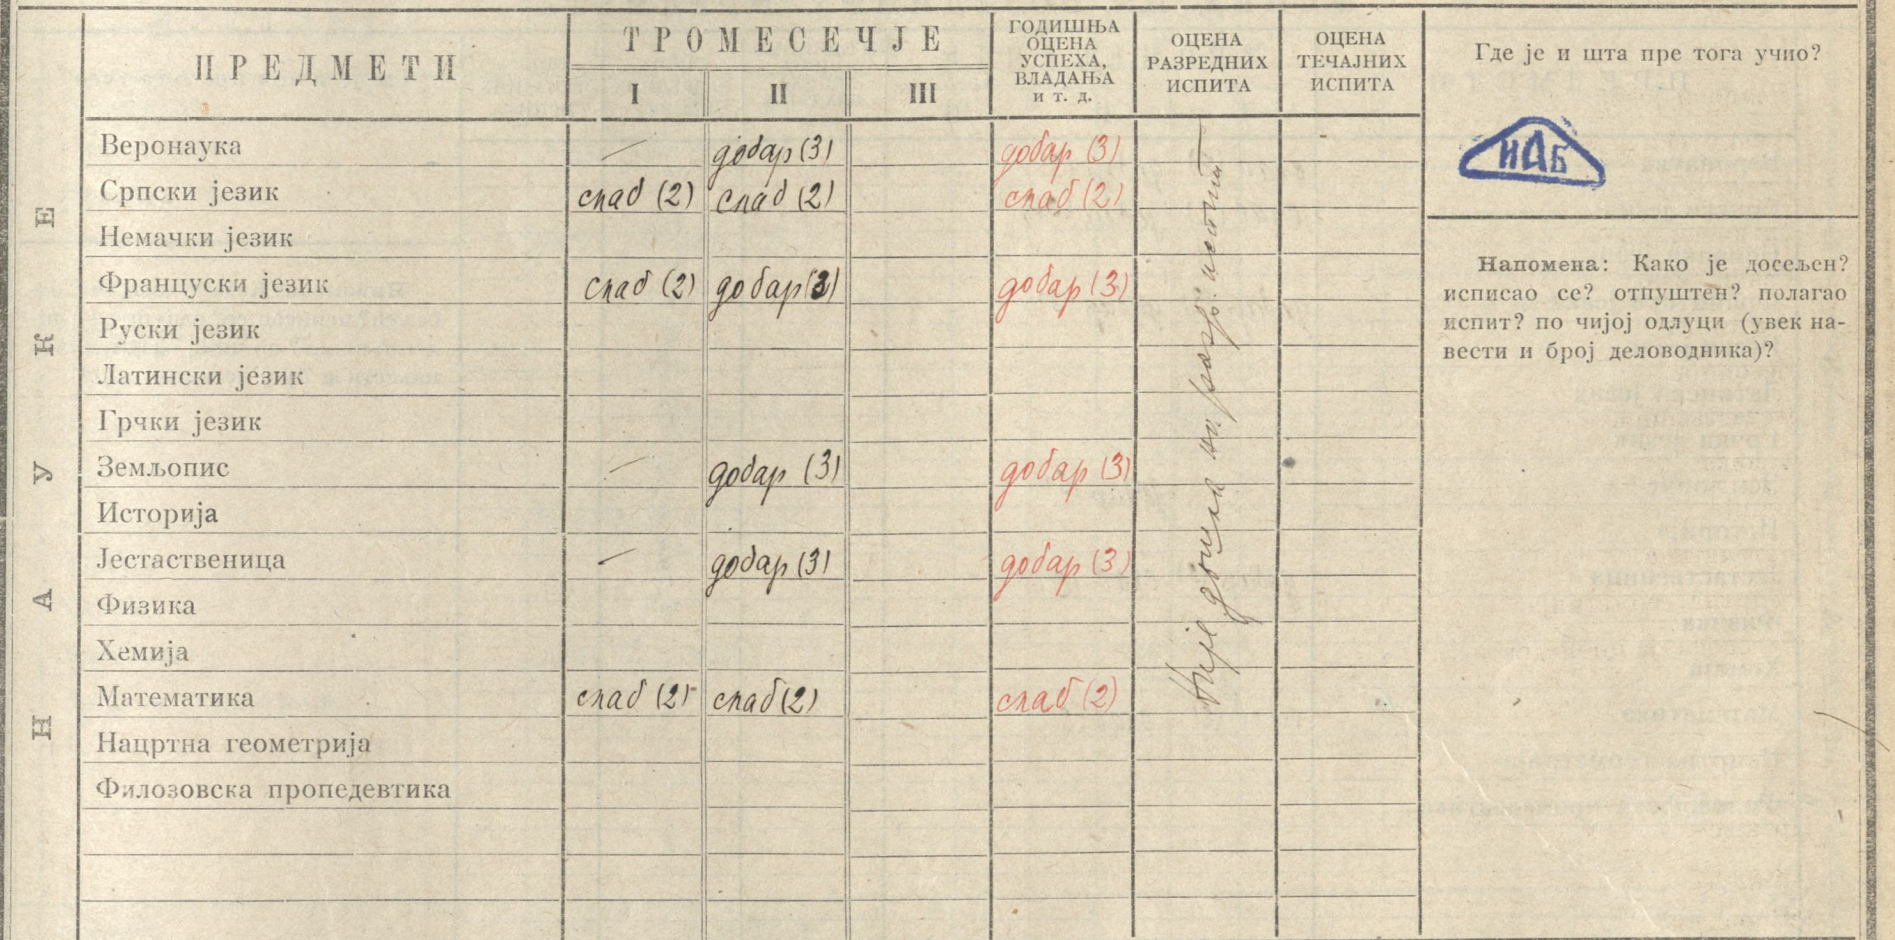 ПРЕДМЕТИ
ТРОМЕСЕЧЈЕ
I II III
ГОДИШЊА ОЦЕНА УСПЕХА, ВЛАДАЊА и т. д.
ОЦЕНА РАЗРЕДНИХ ИСПИТА
ОЦЕНА ТЕЧАЈНИХ ИСПИТА
НАУКЕ
Веронаука — добар (3) добар (3)
Српски језик слаб (2) слаб (2) слаб (2)
Немачки језик
Француски језик слаб (2) добар (3) добар (3)
Руски језик
Латински језик
Грчки језик
Земљопис — добар (3) добар (3)
Историја
Јестаственица — добар (3) добар (3)
Физика
Хемија
Математика слаб (2) слаб (2) слаб (2)
Нацртна геометрија
Филозовска пропедевтика
Није дошла на разр. испит
Где је и шта пре тога учио?
ИАБ
Напомена: Како је досељен?
исписао се? отпуштен? полагао
испит? по чијој одлуци (увек на-
вести и број деловодника)?